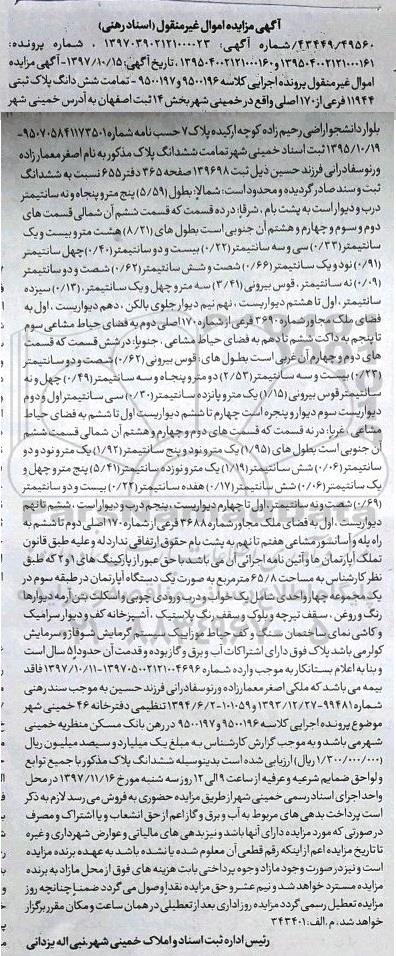 آگهی مزایده اموال غیرمنقول (اسناد رهنی)
۴۳۴۴۹/۴۹۵۶۰/شماره آگهی: ۱۳۹۷۰۳۹۰۲۱۲۱۰۰۰۰۲۳ ، شماره پرونده:
۱۳۹۵۰۴۰۰۲۱۲۱۰۰۰۱۶۰ و ۱۳۹۵۰۴۰۰۲۱۲۱۰۰۰۱۶۱، تاریخ آگهی: ۱۳۹۷/۱۰/۱۵- آگهی مزایده
اموال غیرمنقول پرونده اجرایی کلاسه ۹۵۰۰۱۹۶ و ۹۵۰۰۱۹۷- تمامت شش دانگ پلاک ثبتی
۱۱۹۴۴ فرعی از ۱۷۰ اصلی واقع در خمینی شهر بخش ۱۴ ثبت اصفهان به آدرس خمینی شهر
بلوار دانشجو اراضی رحیم زاده کوچه ارکیده پلاک ۷ حسب نامه شماره ۹۵۰۷۰۵۸۴۱۱۷۳۵۰۱-
۱۳۹۵/۱۰/۱۹ ثبت اسناد خمینی شهر تمامت ششدانگ پلاک مذکور به نام اصغر معمارزاده
ورنوسفادرانی فرزند حسین ذیل ثبت ۱۳۹۶۹۸ صفحه ۳۶۵ دفتر ۶۵۵ نسبت به ششدانگ
ثبت و سند صادر گردیده و محدود است: شمالا: بطول (۵/۵۹) پنج متر و پنجاه و نه سانتیمتر
درب و دیوار است به پشت بام ، شرقا: در ده قسمت که قسمت ششم آن شمالی قسمت های
دوم و سوم و چهارم و هشتم آن جنوبی است بطول های (۸/۲۱) هشت متر و بیست و یک
سانتیمتر (۰/۳۳) سی و سه سانتیمتر (۰/۲۲) بیست و دو سانتیمتر (۰/۴۰) چهل سانتیمتر
(۰/۹۱) نود و یک سانتیمتر (۰/۶۶) شصت و شش سانتیمتر (۰/۶۲) شصت و دو سانتیمتر
(۰/۰۹) نه سانتیمتر، قوس بیرونی (۳/۴۱) سه متر و چهل و یک سانتیمتر، (۰/۱۳) سیزده
سانتیمتر، اول تا هشتم دیواریست ، نهم نیم دیوار جلوی بالکن ، دهم دیواریست ، اول به
فضای ملک مجاور شماره ۳۶۹۰ فرعی از شماره ۱۷۰ اصلی دوم به فضای حیاط مشاعی سوم
تا پنجم به داکت ششم تا دهم به فضای حیاط مشاعی ، جنوبا: در شش قسمت که قسمت
های دوم و چهارم آن غربی است بطول های: قوس بیرونی (۰/۶۲) شصت و دو سانتیمتر
(۰/۲۳) بیست و سه سانتیمتر (۲/۵۳) دو متر و پنجاه و سه سانتیمتر (۰/۴۹) چهل و نه
سانتیمتر قوس بیرونی (۱/۱۵) یک متر و پانزده سانتیمتر (۰/۳۰) سی سانتیمتر اول و دوم
دیواریست سوم دیوار و پنجره است چهارم تا ششم دیواریست اول تا ششم به فضای حیاط
مشاعی ، غربا: در نه قسمت که قسمت های دوم و چهارم و هشتم آن شمالی قسمت ششم
آن جنوبی است بطول های (۱/۹۵) یک متر و نود و پنج سانتیمتر (۱/۹۲) یک متر و نود و دو
سانتیمتر (۰/۰۶) شش سانتیمتر (۱/۱۹) یک متر و نوزده سانتیمتر (۵/۴۱) پنج متر و چهل و
یک سانتیمتر (۰/۰۶) شش سانتیمتر (۰/۱۷) هفده سانتیمتر (۰/۲۲) بیست و دو سانتیمتر
(۰/۶۹) شصت و نه سانتیمتر، اول تا چهارم دیواریست، پنجم درب و دیوار است ، ششم تا نهم
دیواریست ، اول به فضای ملک مجاور شماره ۳۶۸۸ فرعی از شماره ۱۷۰ اصلی دوم تا ششم به
راه پله و آسانسور مشاعی هفتم تا نهم به پشت بام حقوق ارتفاقی ندارد له و علیه طبق قانون
تملک آپارتمان ها و آئین نامه اجرائی آن می باشد با حق عبور از پارکینگ های ۱ و ۲ که طبق
نظر کارشناس به مساحت ۶۵/۸ مترمربع به صورت یک دستگاه آپارتمان در طبقه سوم در
یک مجموعه چهار واحدی شامل یک خواب و درب ورودی چوبی و اسکلت بتن آرمه دیوارها
رنگ و روغن ، سقف تیرچه و بلوک و سقف رنگ پلاستیک ، آشپزخانه کف و دیوار سرامیک
و کاشی نمای ساختمان سنگ و کف حیاط موزاییک ، سیستم گرمایش شوفاژ و سرمایش
کولر می باشد پلاک فوق دارای اشتراکات آب و برق و گاز بوده و قدمت آن حدود ۵ سال است
و بنا به اعلام بستانکار به موجب وارده شماره ۱۳۹۷۰۵۰۰۲۱۲۱۰۰۴۶۹۶-۱۳۹۷/۱۰/۱۱ فاقد
بیمه می باشد که ملکی اصغر معمارزاده ورنوسفادرانی فرزند حسین به موجب سند رهنی
شماره ۹۹۴۸۱-۱۳۹۳/۱۲/۲۷ و ۱۰۱۰۵۹-۱۳۹۴/۶/۲ تنظیمی دفترخانه ۴۶ خمینی شهر
موضوع پرونده اجرایی کلاسه ۹۵۰۰۱۹۶ و ۹۵۰۰۱۹۷ در رهن بانک مسکن منظریه خمینی
شهر می باشد و به موجب گزارش کارشناس به مبلغ یک میلیارد و سیصد میلیون ریال
(۱/۳۰۰/۰۰۰/۰۰۰ ریال) ارزیابی شده است بدینوسیله ششدانگ پلاک مذکور با جمیع توابع
و لواحق ضمایم شرعیه و عرفیه از ساعت ۹ الی ۱۲ روز سه شنبه مورخ ۱۳۹۷/۱۱/۱۶ در محل
واحد اجرای اسناد رسمی خمینی شهر از طریق مزایده حضوری به فروش می رسد لازم به ذکر
است پرداخت بدهی های مربوط به آب و برق و گاز اعم از حق انشعاب و یا اشتراک و مصرف
در صورتی که مورد مزایده دارای آنها باشد و نیز بدهی های مالیاتی و عوارض شهرداری و غیره
تا تاریخ مزایده اعم از اینکه رقم قطعی آن معلوم شده یا نشده باشد به عهده برنده مزایده
است و نیز در صورت وجود مازاد وجوه پرداختی بابت هزینه های فوق از محل مازاد به برنده
مزایده مسترد خواهد شد و نیم عشر و حق مزایده نقداً وصول می گردد ضمناً چنانچه روز
مزایده تعطیل رسمی گردد مزایده روز اداری بعد از تعطیلی در همان ساعت و مکان مقرر برگزار
خواهد شد. م.الف: ۳۴۳۴۰۱
رئیس اداره ثبت اسناد و املاک خمینی شهر-نبی اله یزدانی